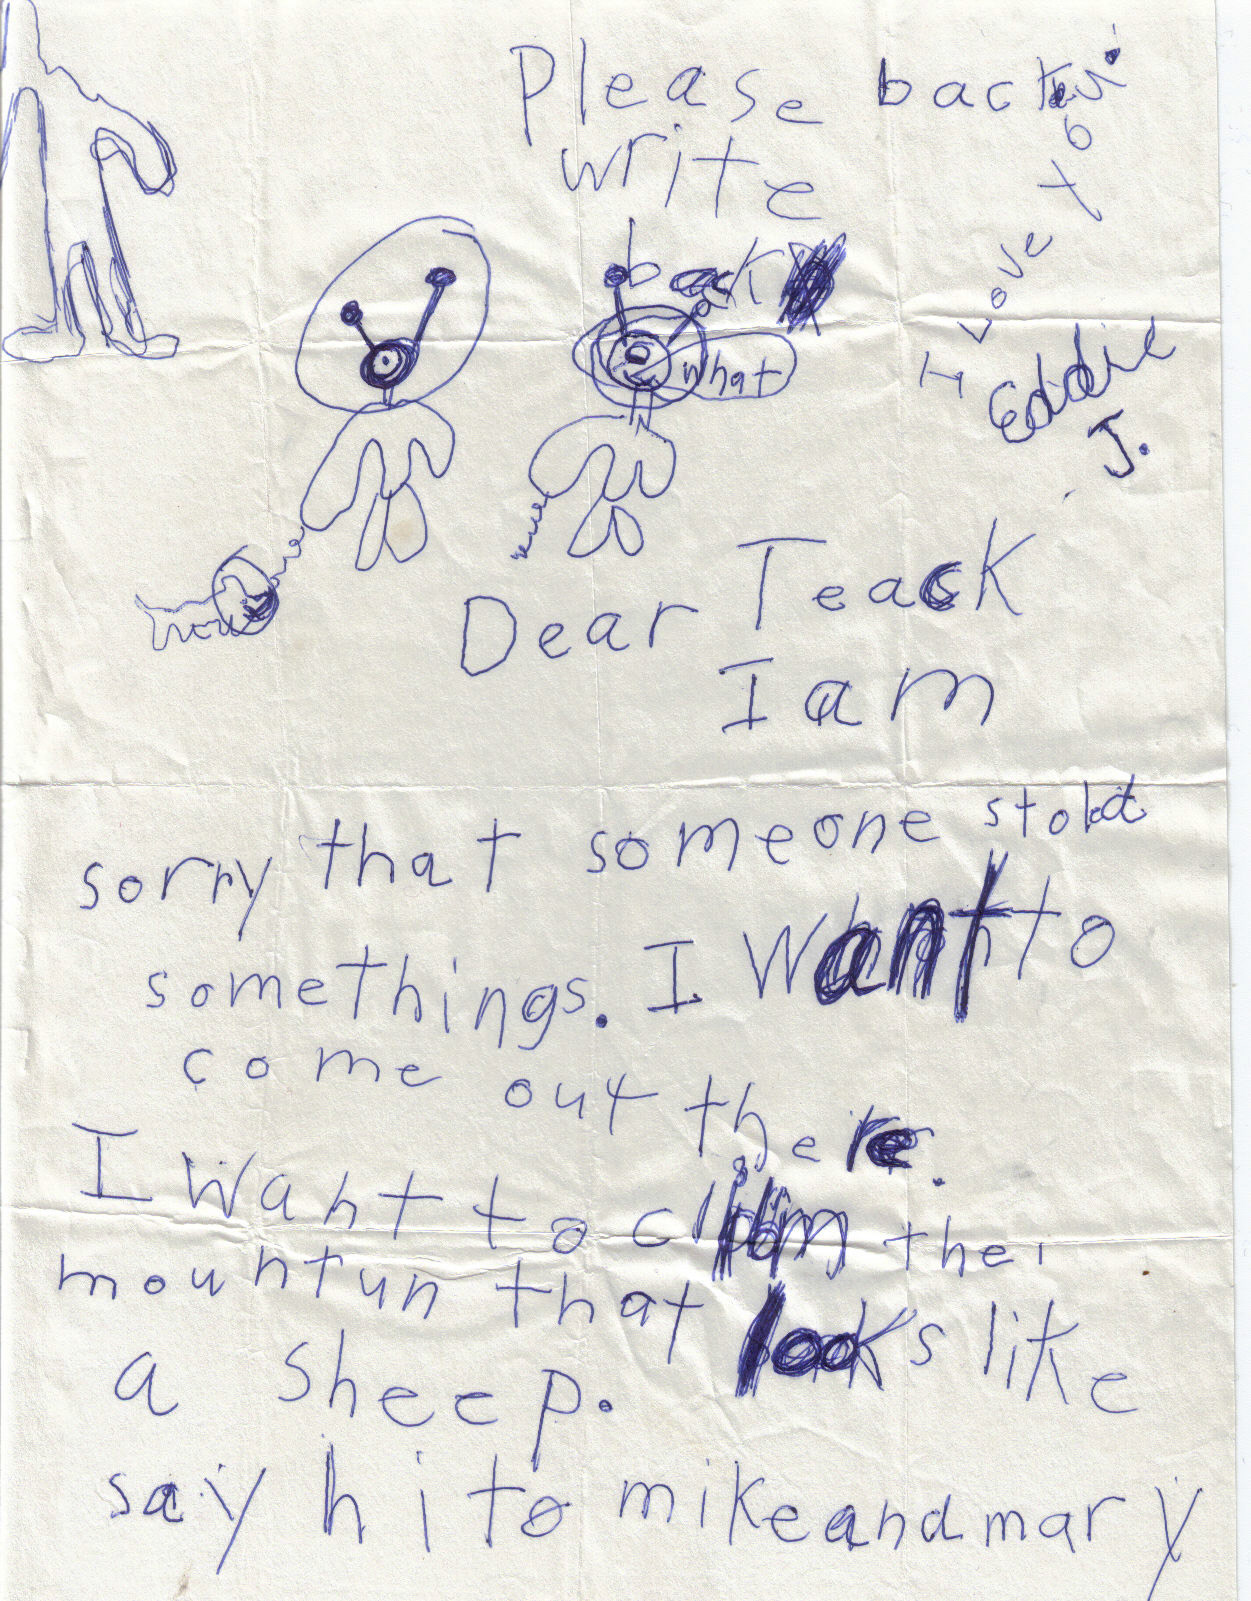 Please back
write
back
what
I Love you
Eddie
J.
Dear Teack
I am
sorry that someone stold
somethings. I want to
come out there.
I want to clibm the
mountun that looks like
a sheep.
say hi to mike and mary